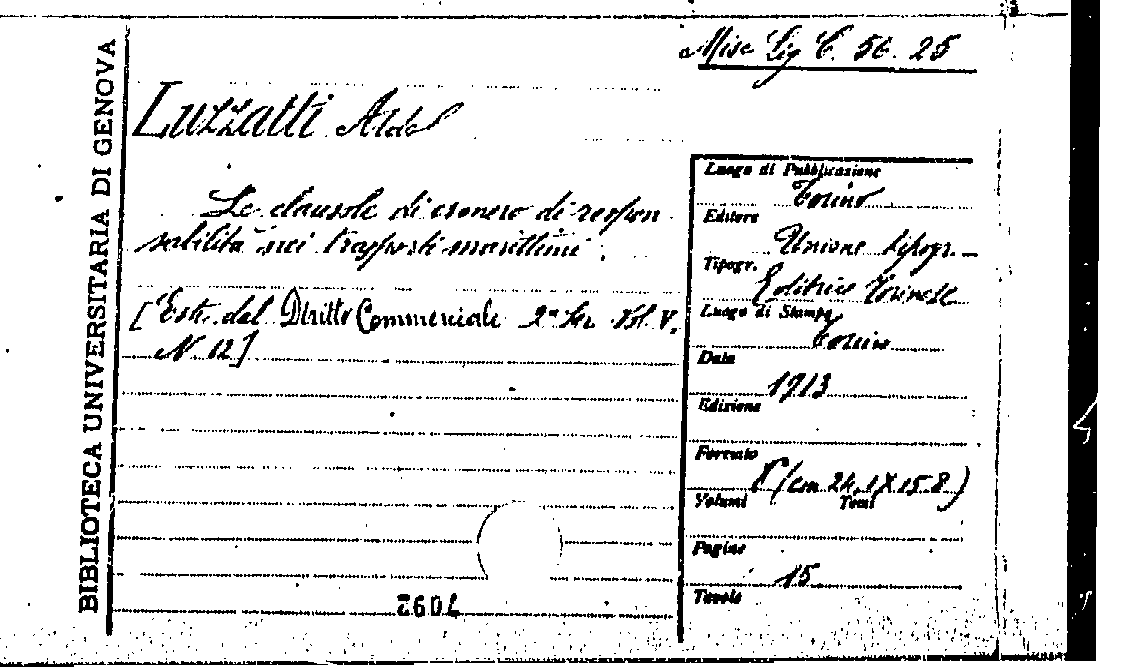 BIBLIOTECA UNIVERSITARIA DI GENOVA
Misc Lig C. 56. 25
Luzzatti Aldo
Le clausole di esonero di respon
sabilità nei trasporti marittimi.
[Estr. dal Diritto Commerciale 2ª Ser. Vol. V.
N. 12]
Luogo di Pubblicazione
Torino
Editore
Unione tipogr. –
Tipogr.
Editrice Torinese
Luogo di Stampa
Torino
Data
1913
Edizione
Formato
8º (cm 24,1 X 15.8)
Volumi Tomi
Pagine
15
Tavole